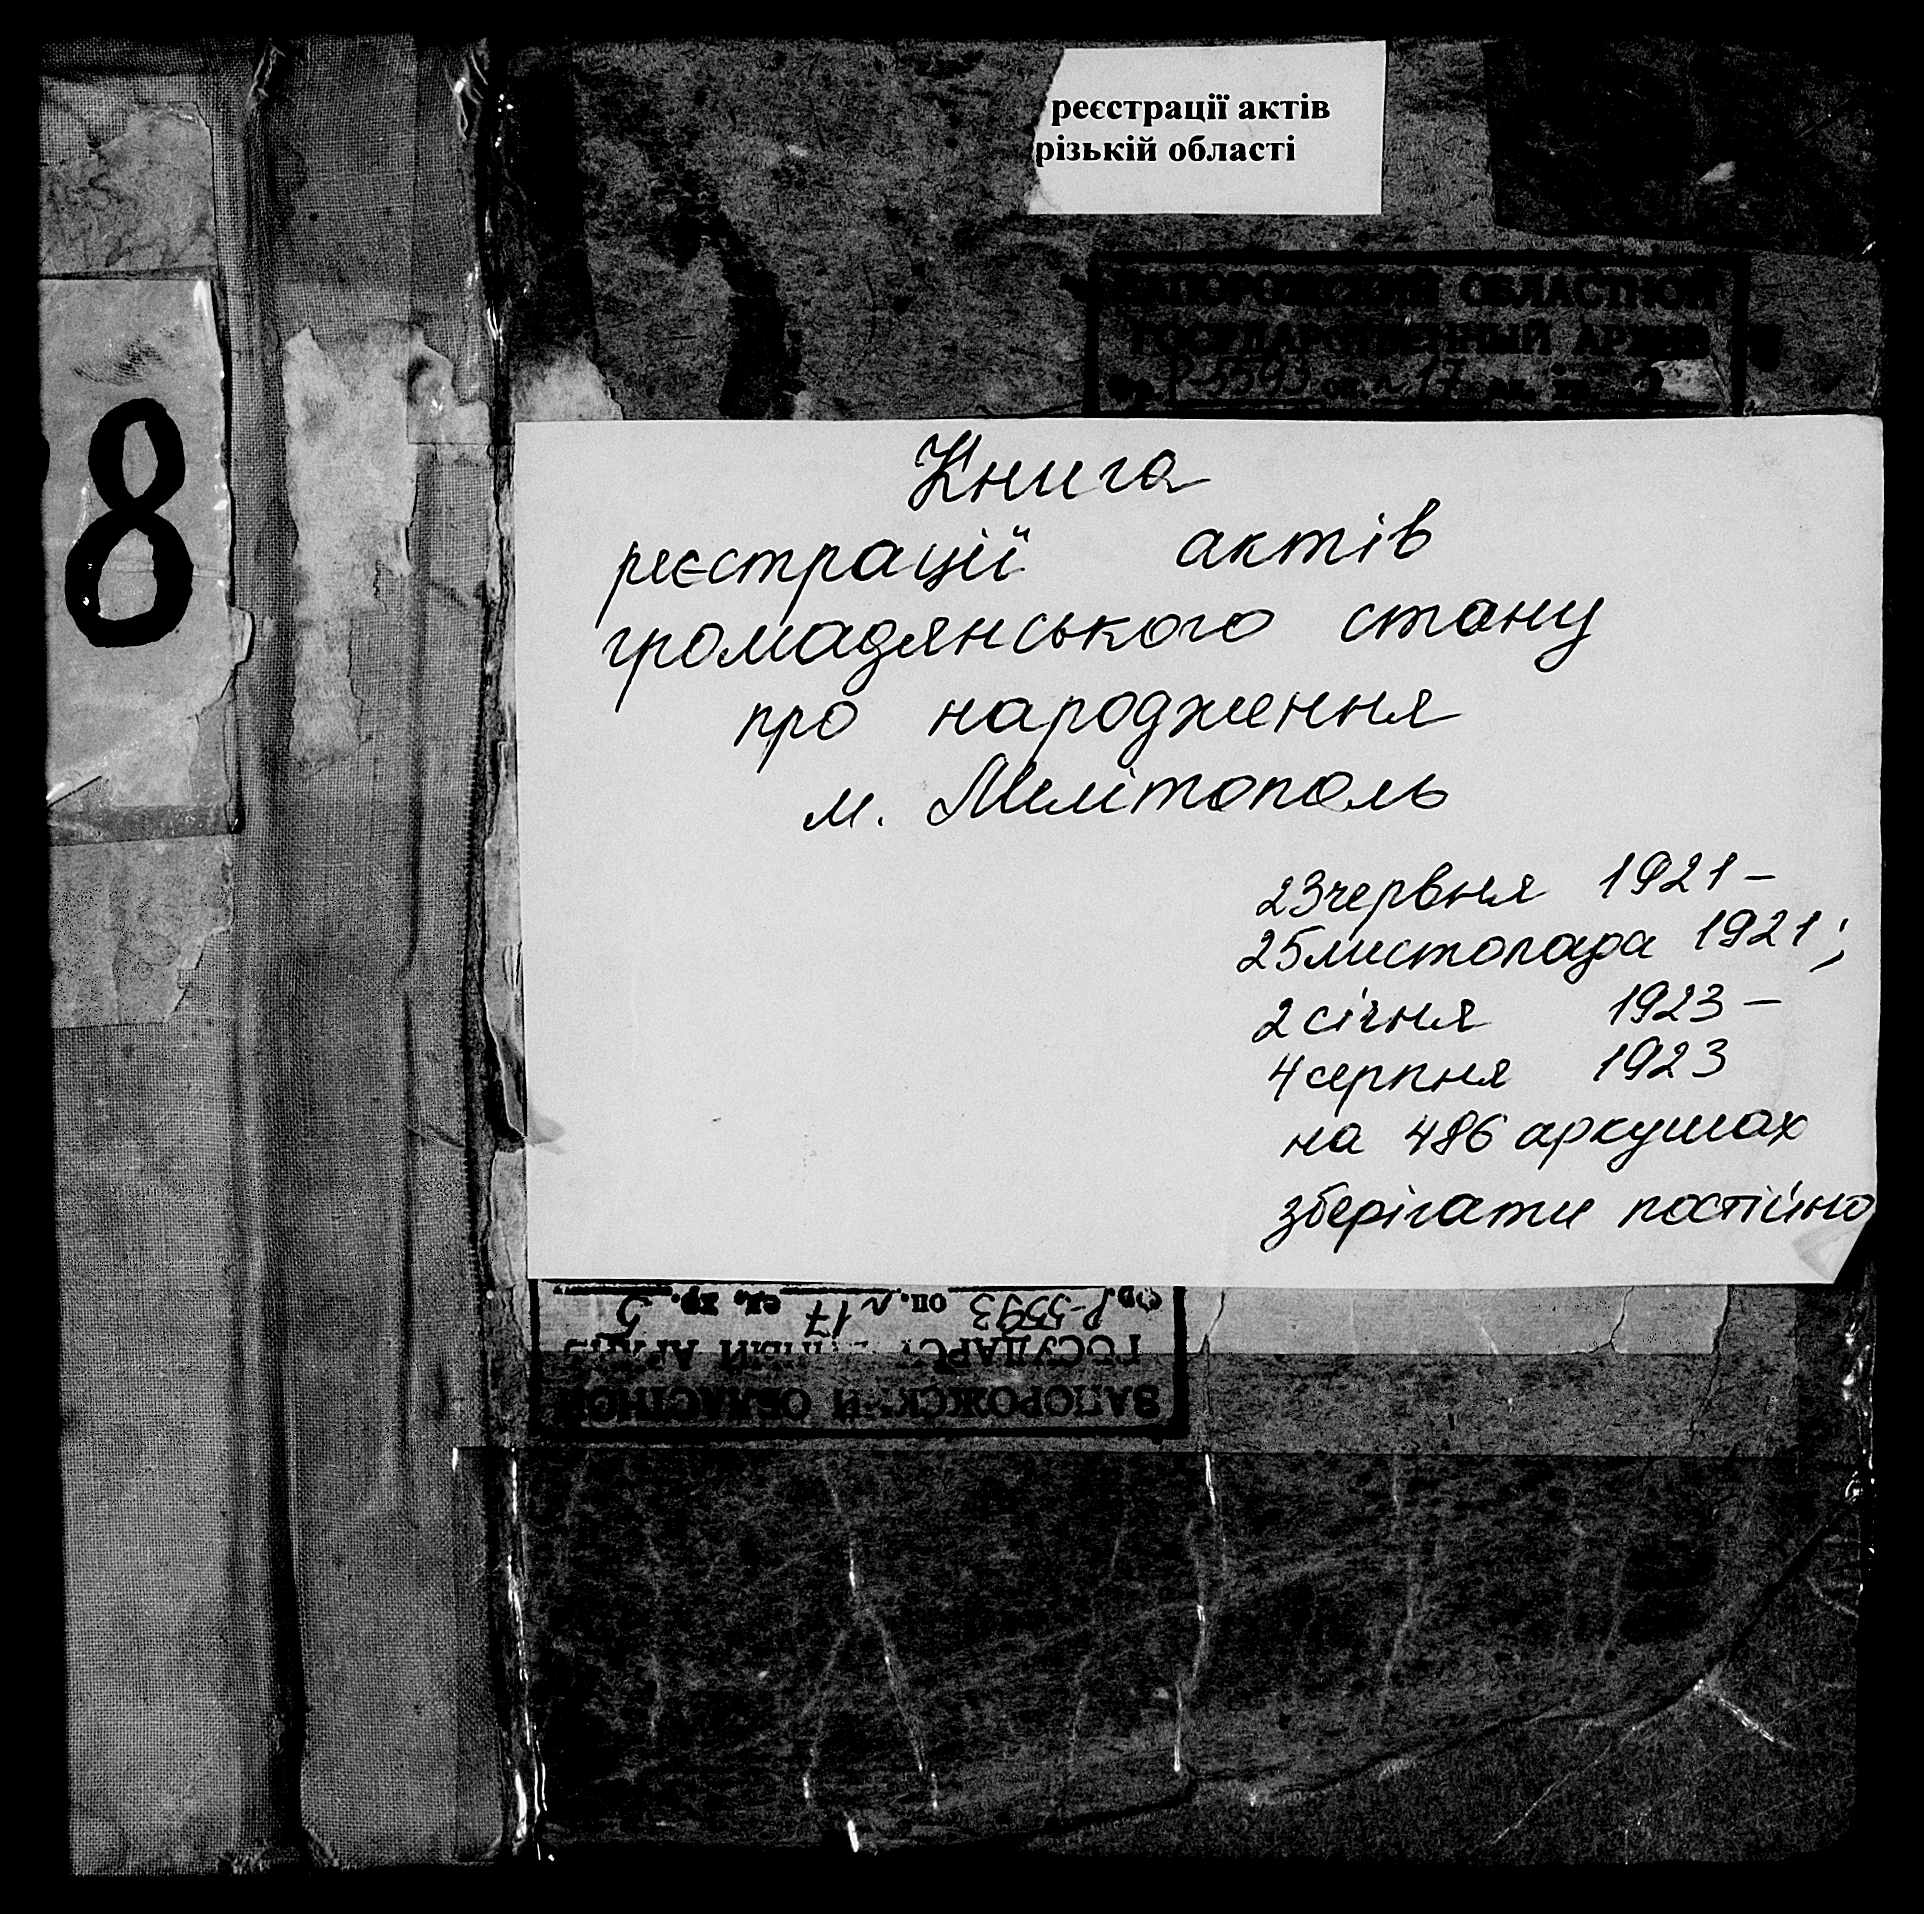 реєстрації актів
різькій області
ЗАПОРОЖСКИЙ ОБЛАСТНОЙ
ГОСУДАРСТВЕННЫЙ АРХИВ
Р-5593 оп. 17
8
Книга
реєстрації актів
громадянського стану
про народження
м. Мелітополь
23 червня 1921 –
25 листопада 1921;
2 січня 1923 –
4 серпня 1923
на 486 аркушах
зберігати постійно
Р-5593 оп. 17 ед. хр. 5
ГОСУДАРСТ ННЫЙ АРХИВ
ЗАПОРОЖСКИЙ ОБЛАСТНОЙ